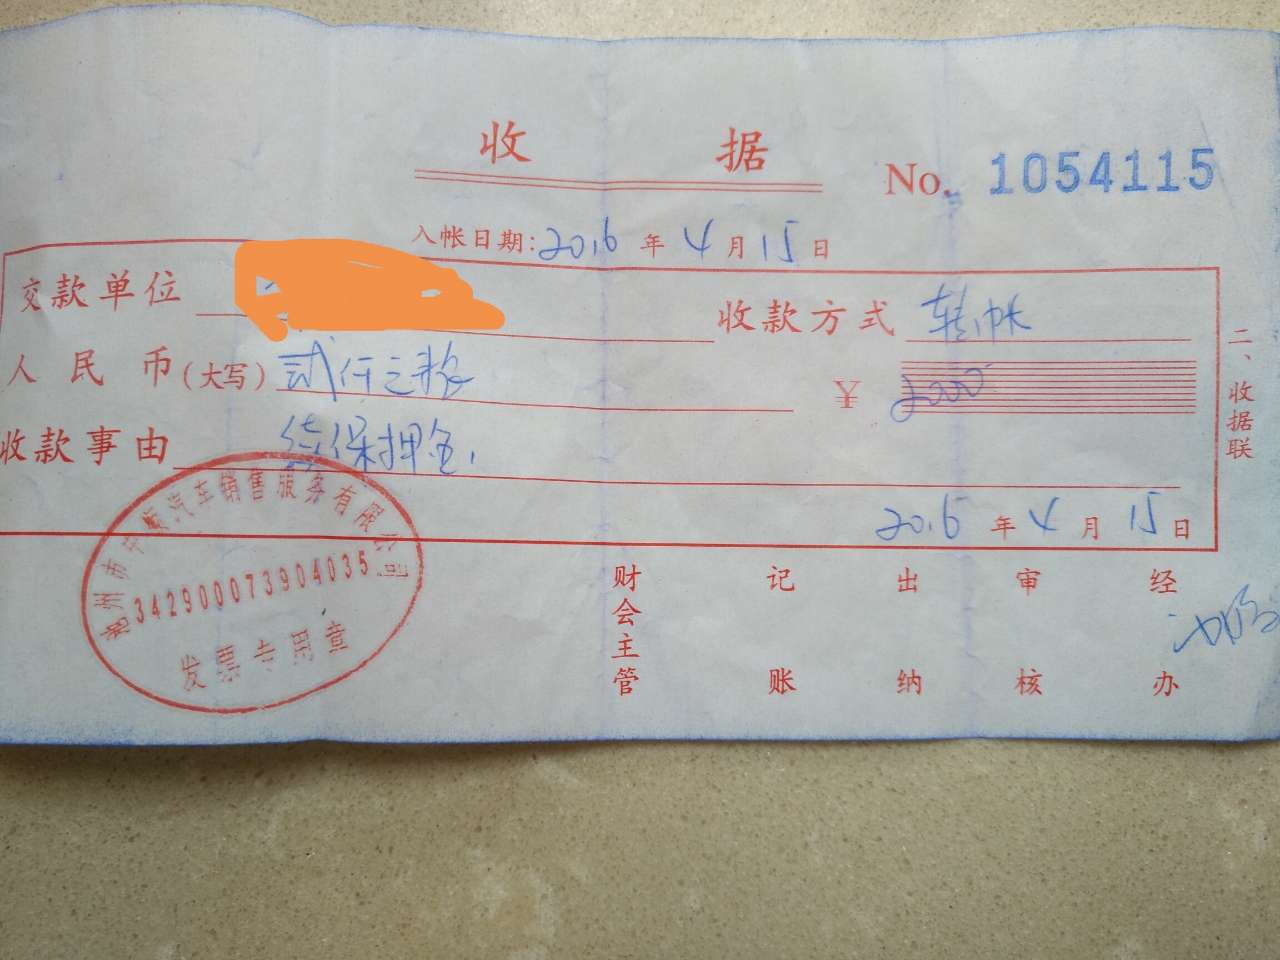 收据
No. 1054115
入帐日期:2016年4月15日
交款单位
收款方式 转帐
人民币(大写)贰仟元整
¥2000
收款事由 续保押金
2016年4月15日
二、收据联
州市中顺汽车销售服务有限公司
342900073904035
发票专用章
财会主管
记账
出纳
审核
经办